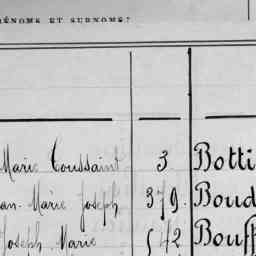 RÉNOMS ET SURNOMS.
Marie Toussaint 3 Botti
an-Marie Joseph 379. Boud
Joseph Marie 572 Bouff